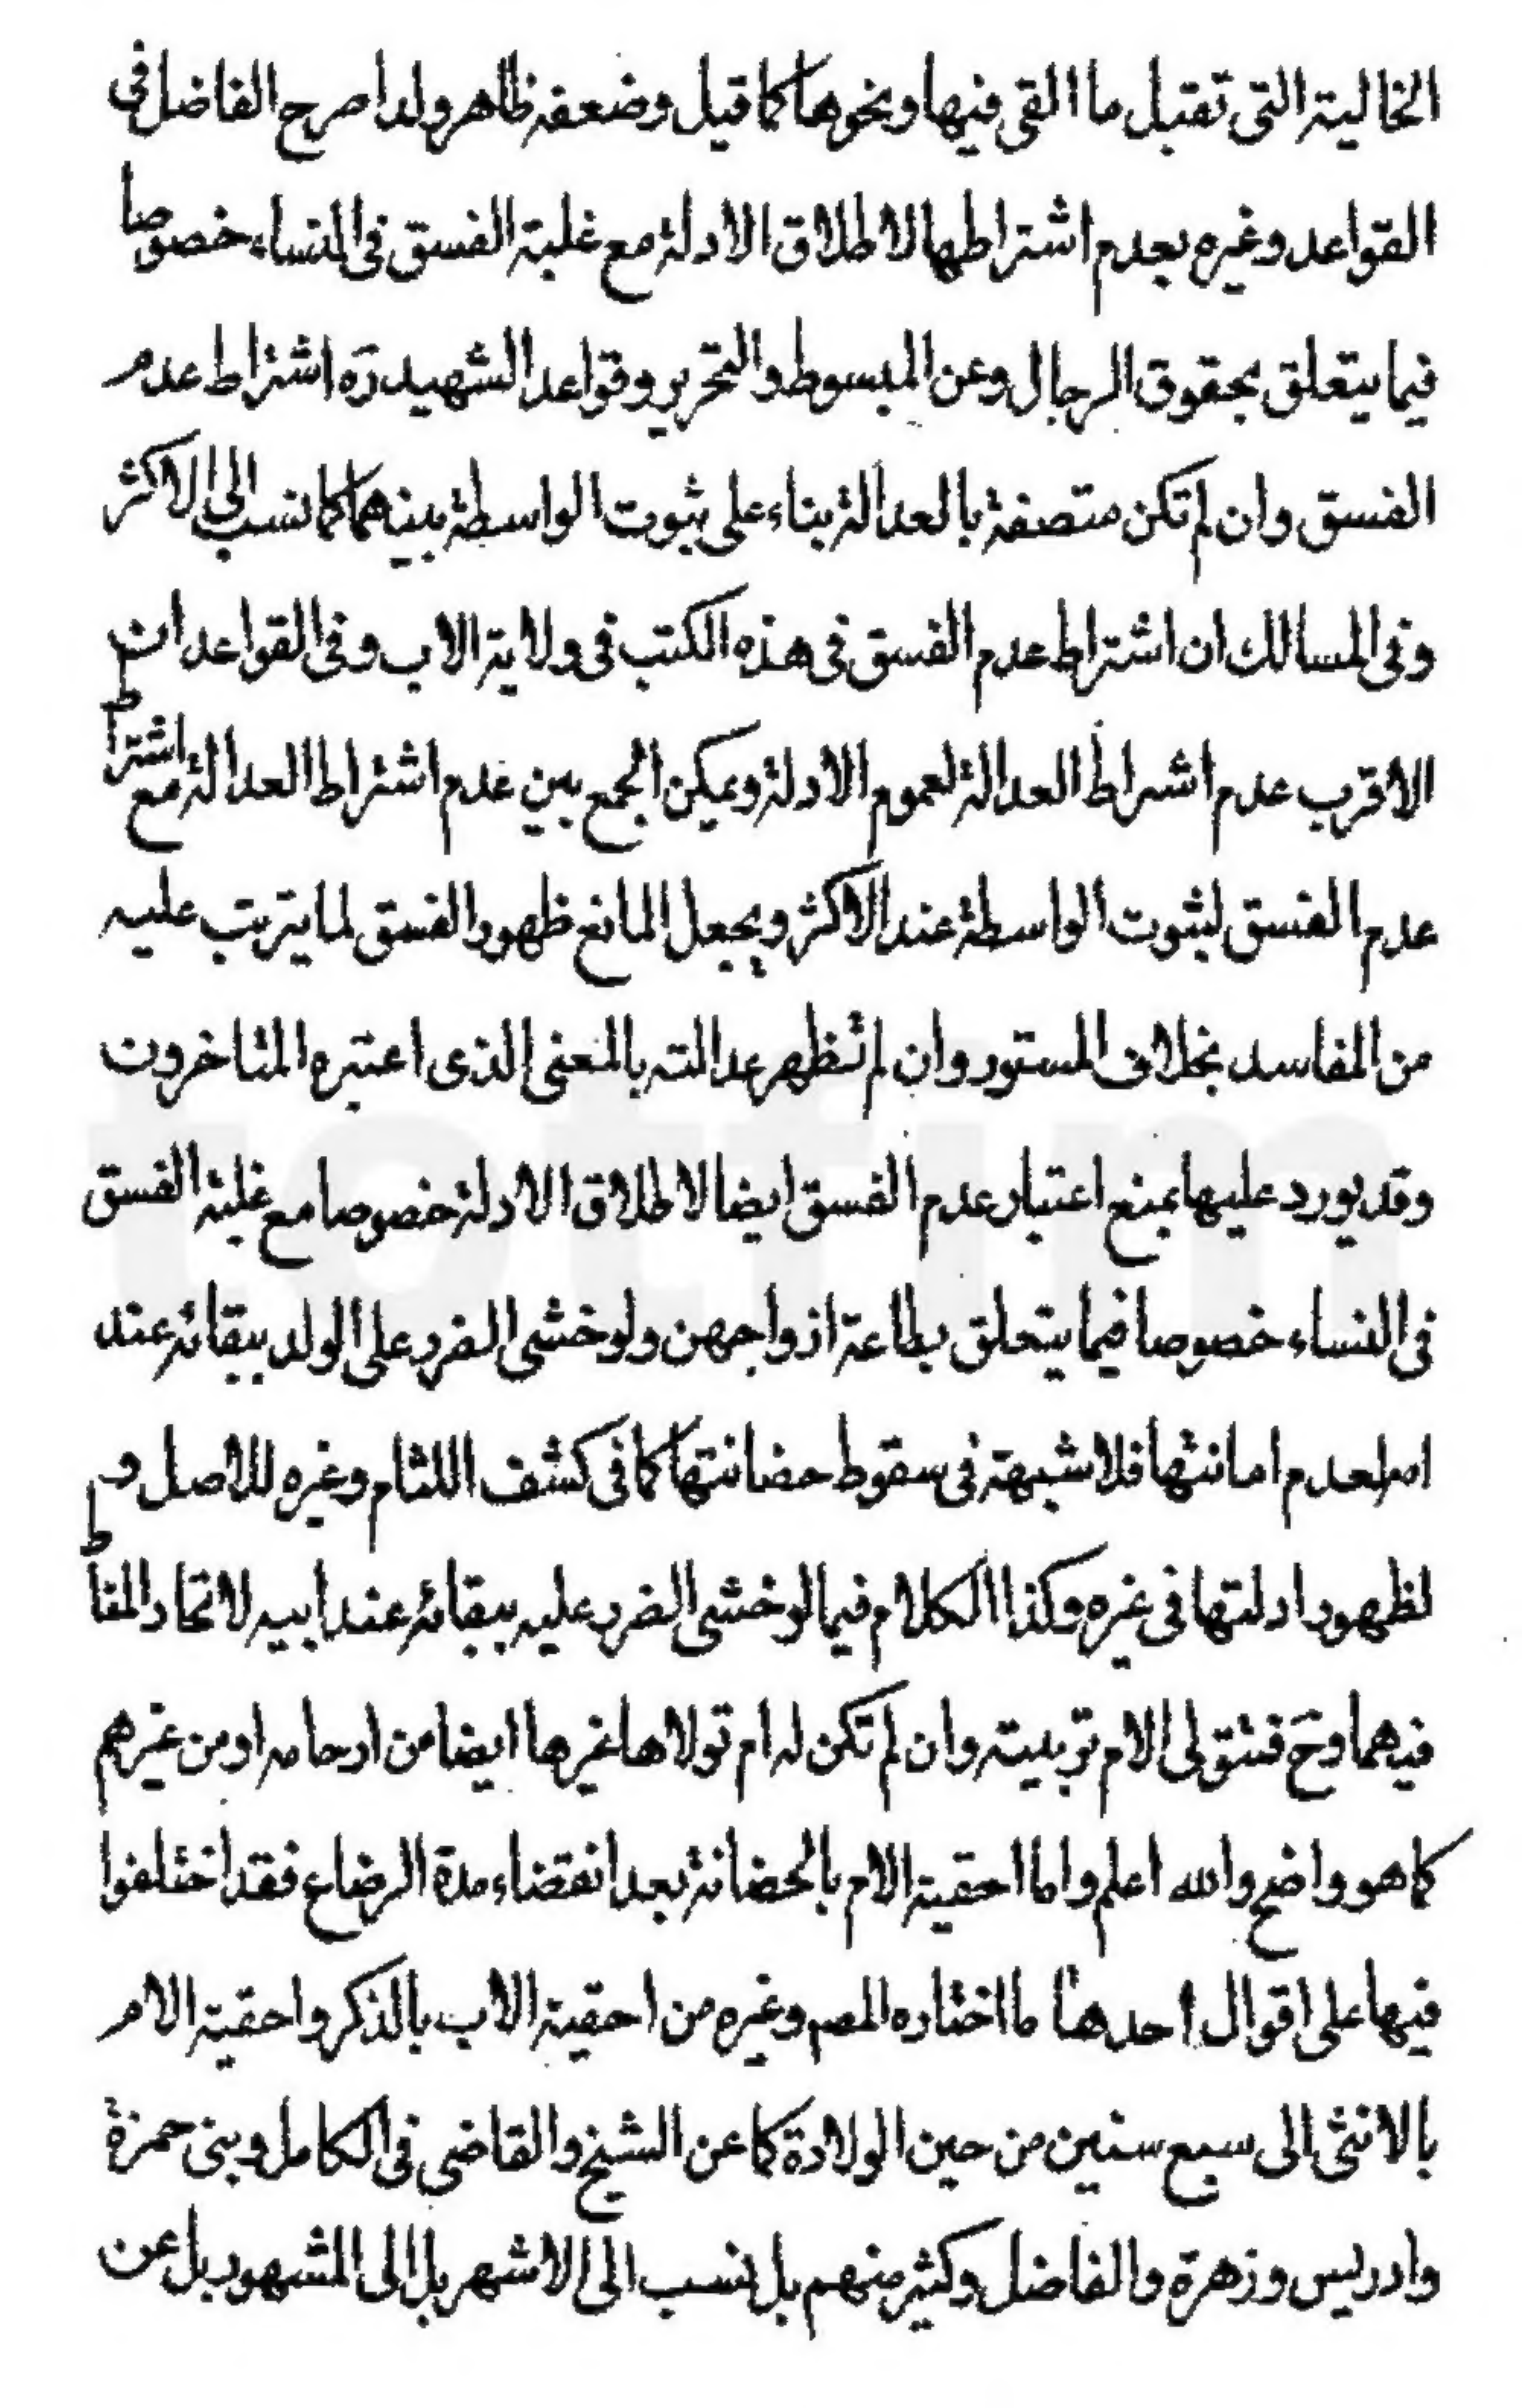 الخالية التى تقبل ما القى فيها ونحوها كما قيل وضعفه ظاهر ولذا صرح الفاضل فى
القواعد وغيره بعدم اشتراطها لاطلاق الادلة مع غلبة الفسق فى النساء خصوصا
فيما يتعلق بحقوق الرجال وعن المبسوط والتحرير وقواعد الشهيد ره اشتراط عدم
الفسق وان لم تكن متصفة بالعدالة بناء على ثبوت الواسطة بينهما كما نسب الى الاكثر
وفى المسالك ان اشتراط عدم الفسق فى هذه الكتب فى ولاية الاب وفى القواعد ان
الاقرب عدم اشراط العدالة لعموم الادلة ويمكن الجمع بين عدم اشتراط العدالة مع اشتراط
عدم الفسق لثبوت الواسطة عند الاكثر ويجعل المانع ظهور الفسق لما يترتب عليه
من المفاسد بخلاف المستور وان لم تظهر عدالته بالمعنى الذى اعتبره المتاخرون
وقد يورد عليها بمنع اعتبار عدم الفسق ايضا لاطلاق الادلة خصوصا مع غلبة الفسق
فى النساء خصوصا فيما يتعلق بطاعة ازواجهن ولو خشى الضرر على الولد ببقائه عند
امه لعدم امانتها فلا شبهة فى سقوط حضانتها كما فى كشف اللثام وغيره للاصل و
لظهور ادلتها فى غيره وكذا الكلام فيما لو خشى الضرر عليه ببقائه عند ابيه لاتحاد المناط
فيهما وح فتتولى الام تربيته وان لم تكن له ام تولاها غيرها ايضا من ارحامه او من غيرهم
كما هو واضح والله اعلم واما احقية الام بالحضانة بعد انقضاء مدة الرضاع فقد اختلفوا
فيها على اقوال احدها ما اختاره المصم وغيره من احقية الاب بالذكر واحقية الام
بالانثى الى سبع سنين من حين الولادة كما عن الشيخ والقاضى فى الكامل وبنى حمزة
وادريس وزهرة والفاضل وكثير منهم بل نسب الى الاشهر بل الى المشهور بل عن